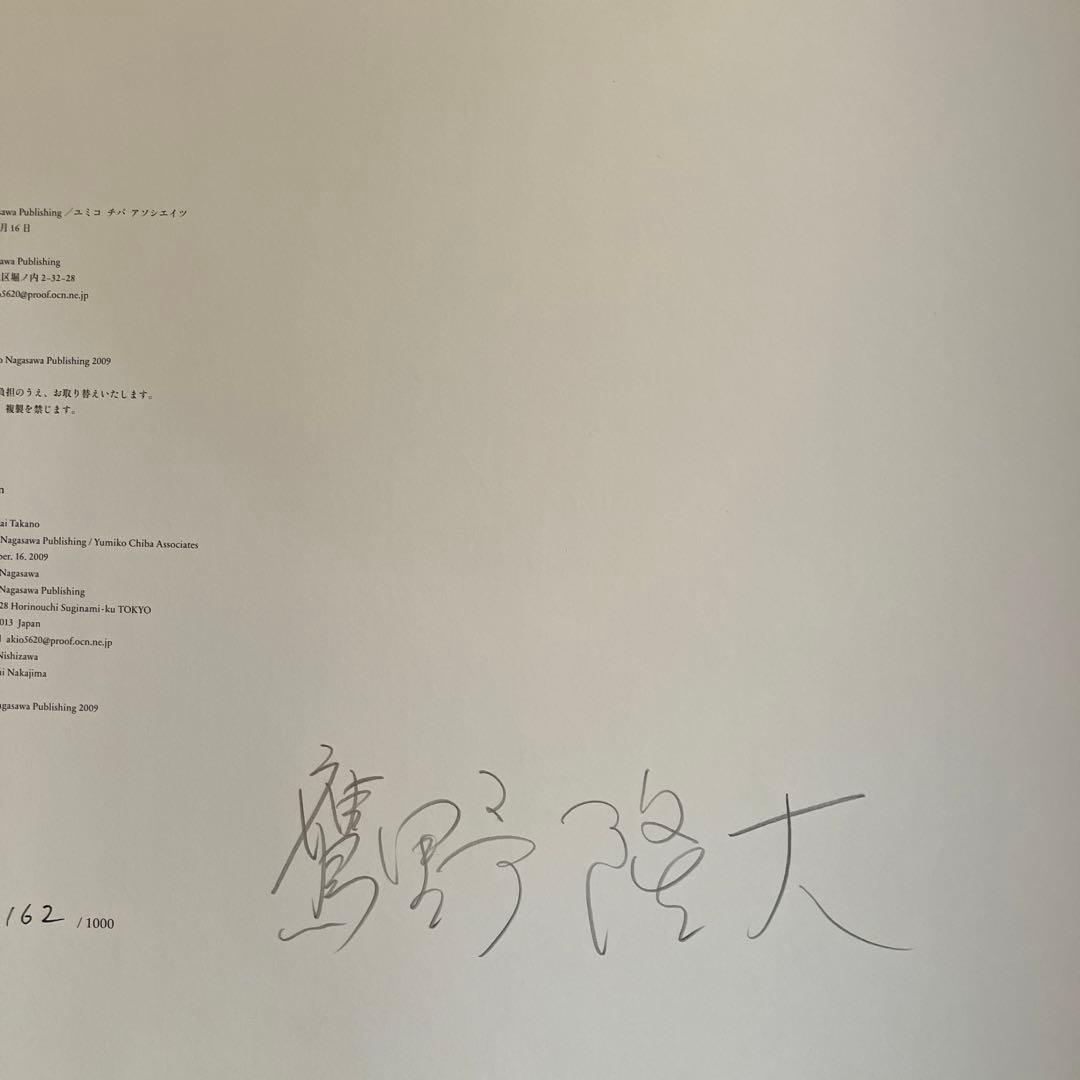 sawa Publishing ／ユミコ チバ アソシエイツ
月 16 日
awa Publishing
区堀ノ内 2-32-28
5620@proof.ocn.ne.jp
o Nagasawa Publishing 2009
負担のうえ、お取り替えいたします。
複製を禁じます。
n
ai Takano
Nagasawa Publishing / Yumiko Chiba Associates
ber. 16. 2009
Nagasawa
Nagasawa Publishing
28 Horinouchi Suginami-ku TOKYO
013 Japan
l akio5620@proof.ocn.ne.jp
Nishizawa
ni Nakajima
agasawa Publishing 2009
鷹野隆大
162 / 1000